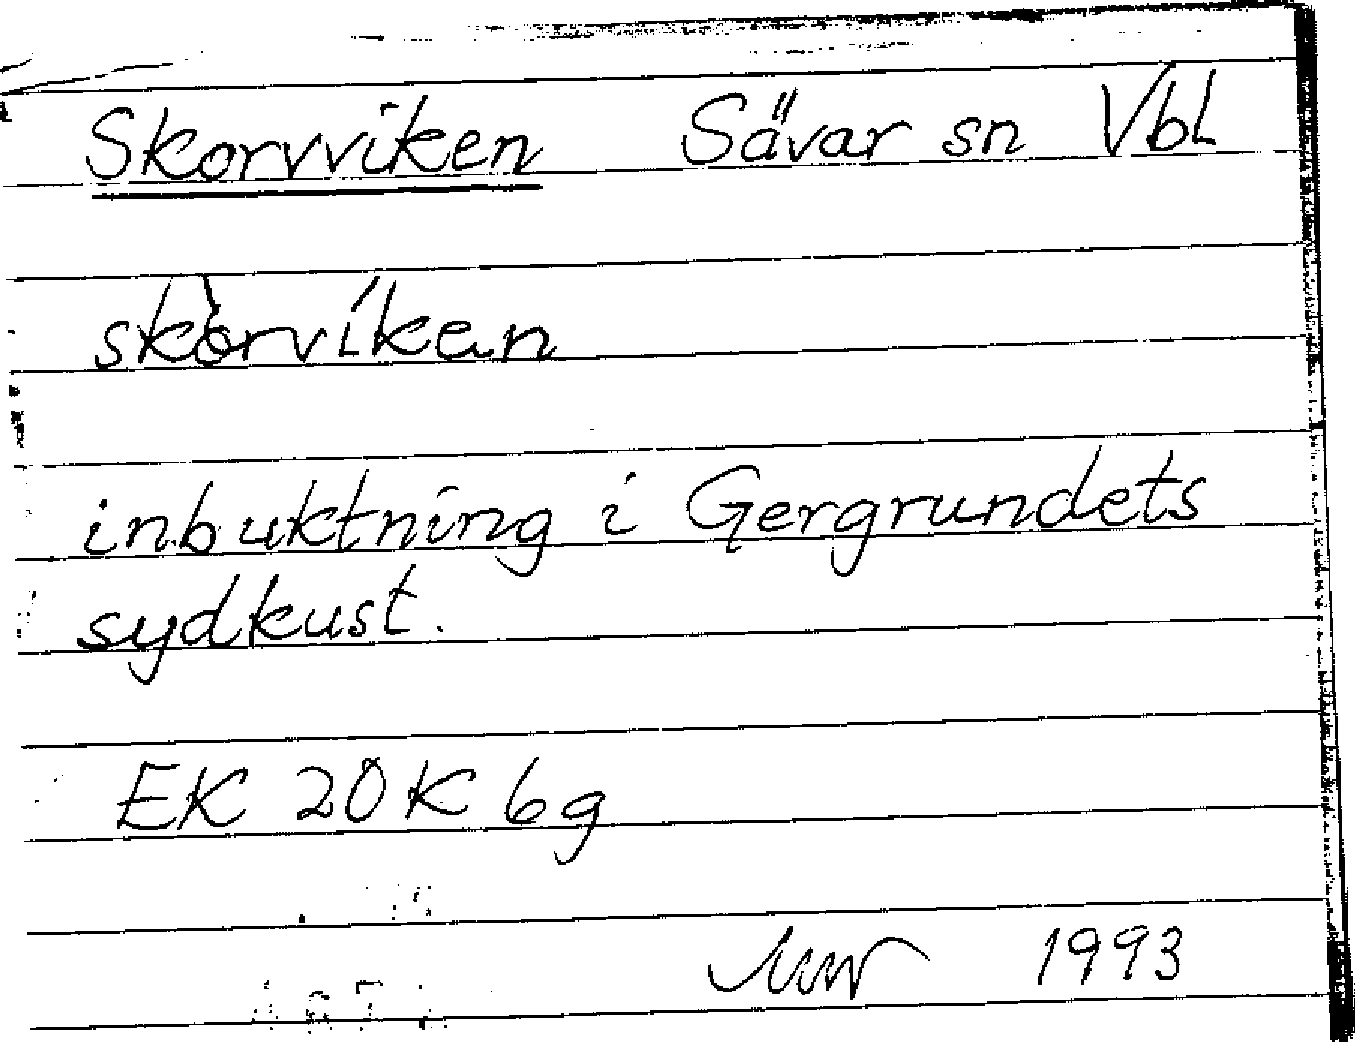 Skorvviken Sävar sn Vbl
skòrvíkan
inbuktning i Gergrundets
sydkust.
EK 20K 6g
1993